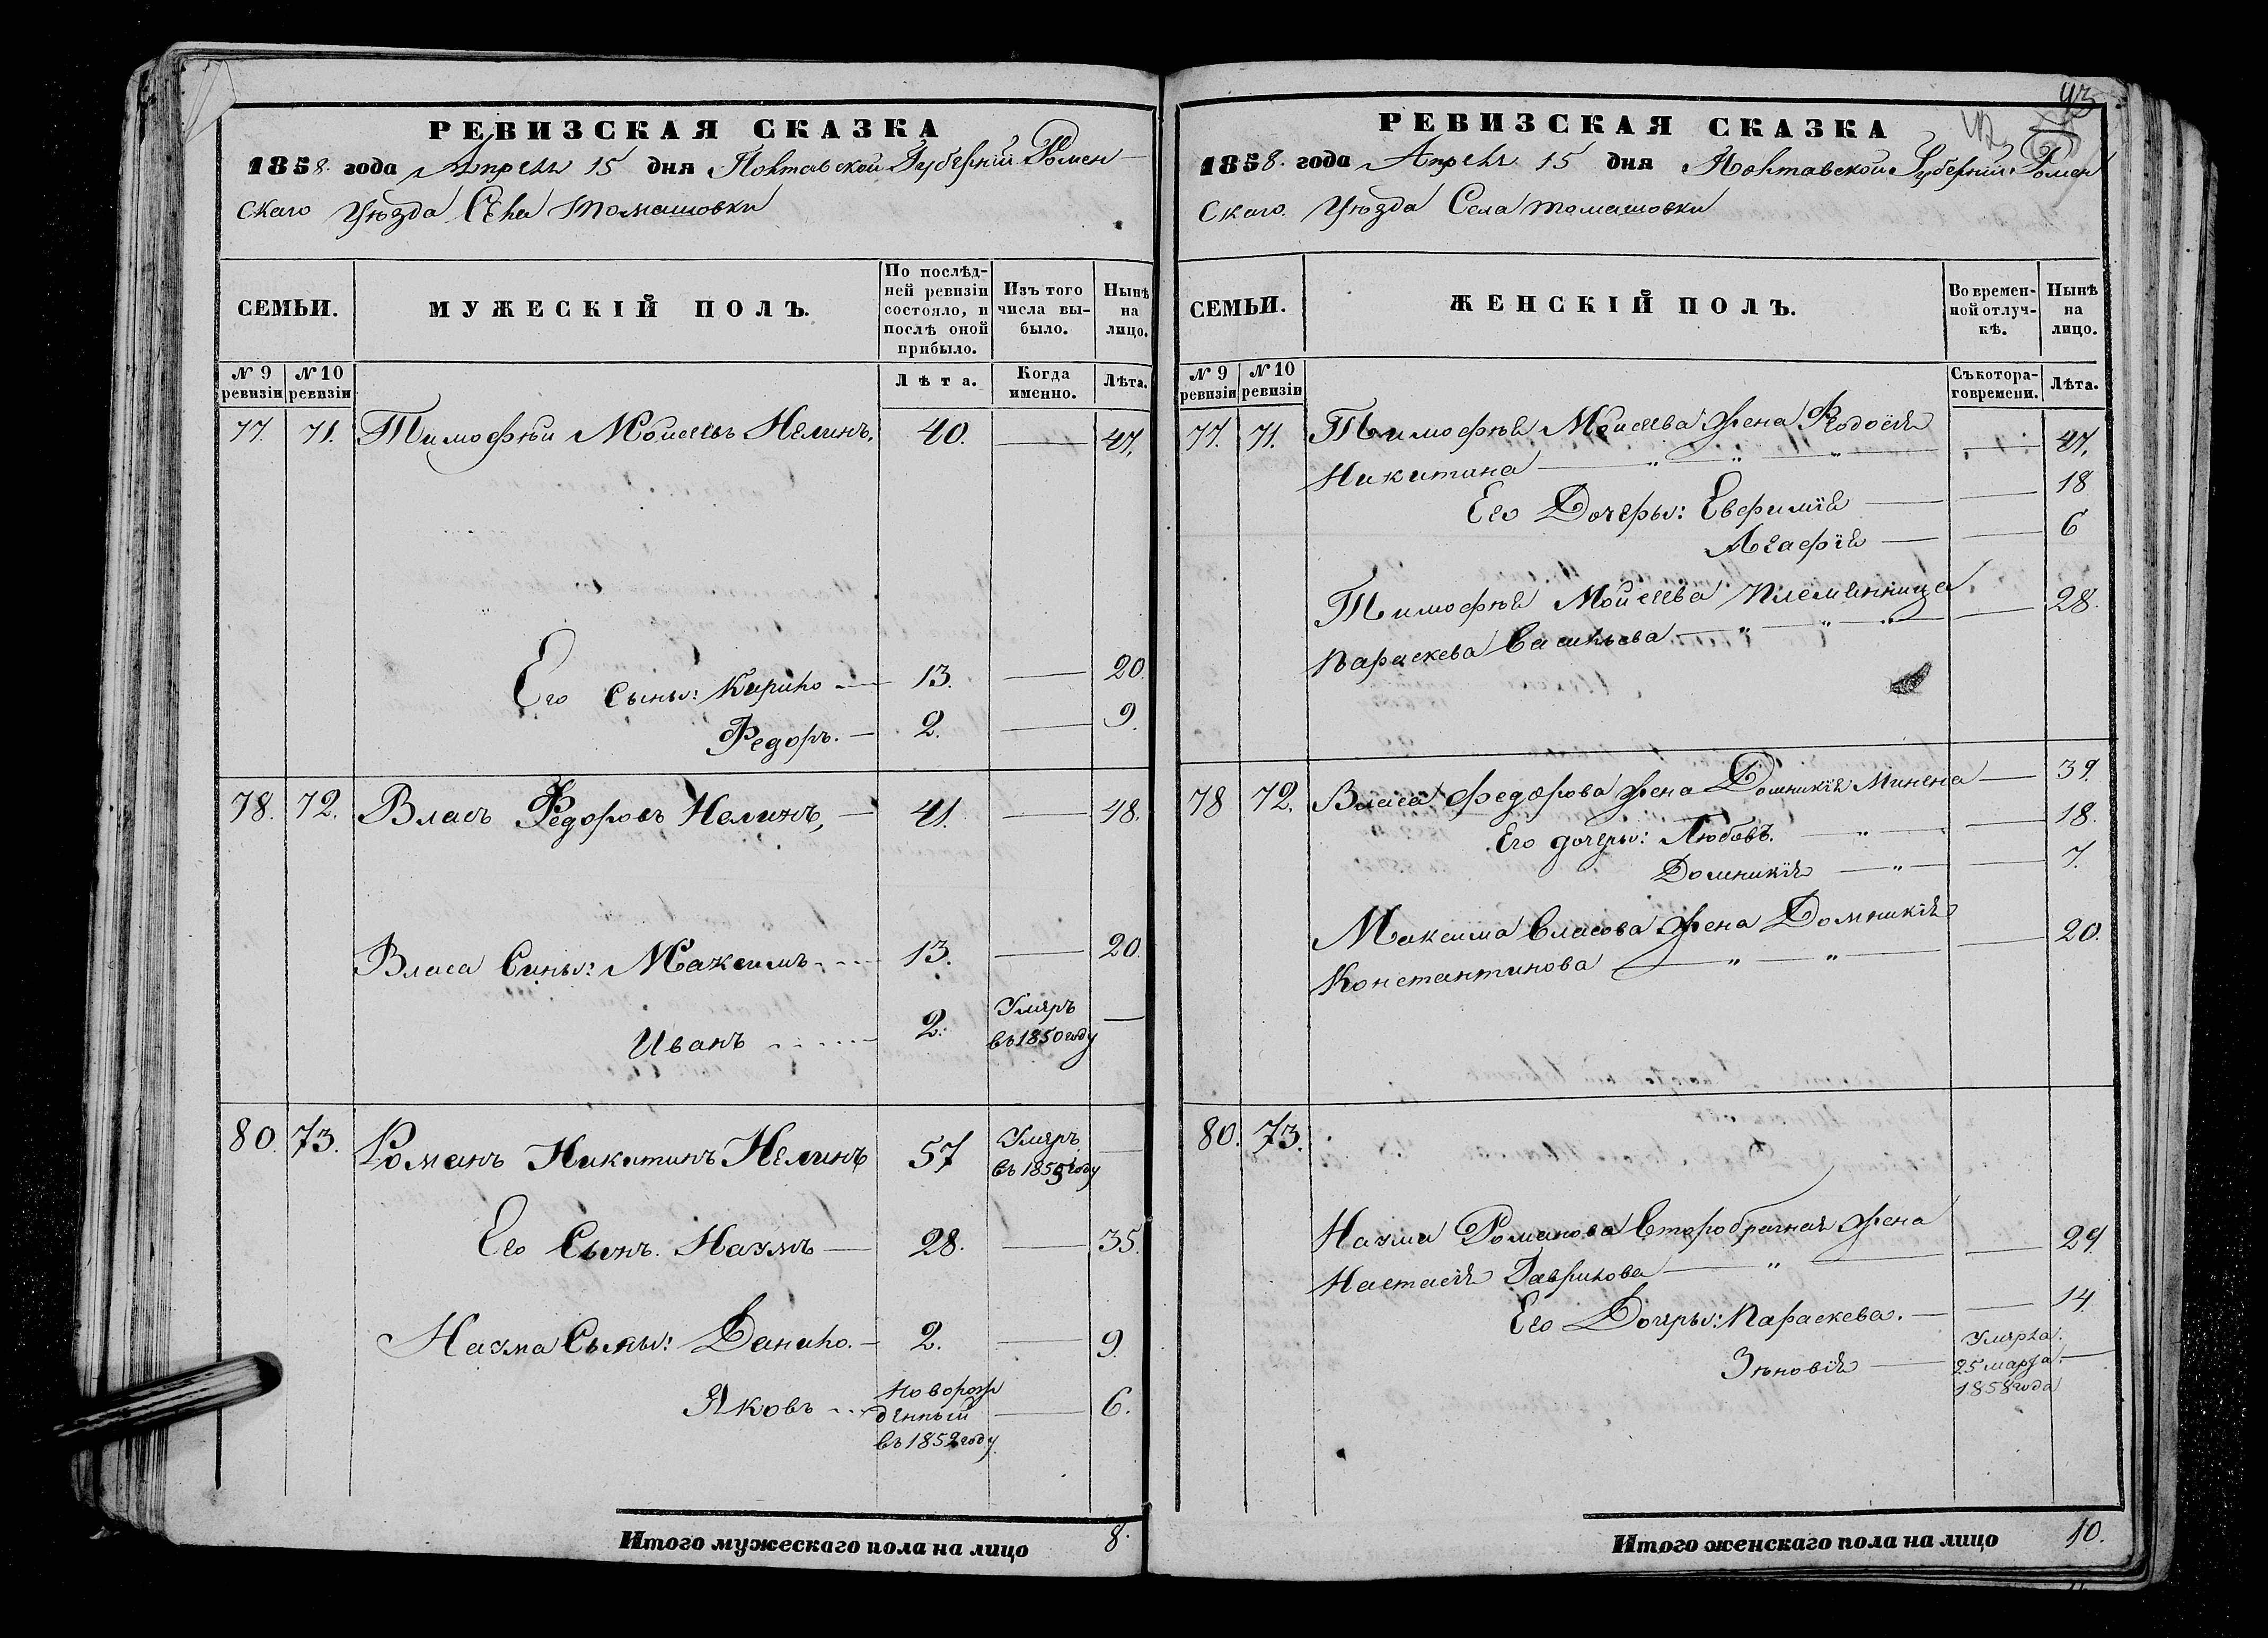 РЕВИЗСКАЯ СКАЗКА
1858. года Апреля 15 дня Полтавской Губерніи Ромен-
скаго Уѣзда Села Томашовки
СЕМЬИ.
МУЖЕСКІЙ ПОЛЪ.
По послѣд-
ней ревизіи
состояло, и
послѣ оной
прибыло.
Изъ того
числа вы-
было.
Нынѣ
на
лицо.
№ 9 ревизіи
№ 10 ревизіи
Лѣта.
Когда
именно.
Лѣта.
77. 71. Тимофѣй Моисеевъ Нелинъ. 40. — 47.
Его Сыны: Кирило — 13. — 20.
Федоръ. — 2. — 9.
78. 72. Власъ Федоровъ Нелинъ, — 41. — 48.
Власа Сины: Максимъ 13. — 20.
Иванъ 2. Умеръ —
въ 1850 году
80. 73. Романъ Никитинъ Нелинъ 57 Умеръ —
въ 1855 году
Его Сынъ. Наумъ — 28. — 35.
Наума Сыны: Данило. — 2. — 9.
Яковъ Новорож
денный — 6.
въ 1852 году
Итого мужескаго пола на лицо 8.
93
РЕВИЗСКАЯ СКАЗКА
1858. года Апреля 15 дня Полтавской Губерніи Ромен
скаго. Уѣзда Села Томашовки
СЕМЬИ.
ЖЕНСКІЙ ПОЛЪ.
Во времен-
ной отлуч-
кѣ.
Нынѣ
на
лицо.
№ 9 ревизіи
№ 10 ревизіи
Съ котора-
го времени.
Лѣта.
77. 71. Тимофѣя Моисеева жена Федосія
Никитина — " — " — " — 47.
Его Дочеры: Евфимія — 18
Агафія — 6
Тимофѣя Моисеева племянница
Параскева Васильева — " — " — " — 28.
78 72. Власа Федорова жена Домникія Минена — 39.
Его дочеры: Любовъ. — " — 18.
Домникія — " — 7.
Максима Власова жена Домникія
Константинова — " — " — 20.
80. 73.
Наума Романова Второбрачная жена
Настасія Гаврилова — " — 29
Его Дочеры: Параскева. — 14
Зѣновія — Умерла. —
25 марта.
1858 года
Итого женскаго пола на лицо 10.